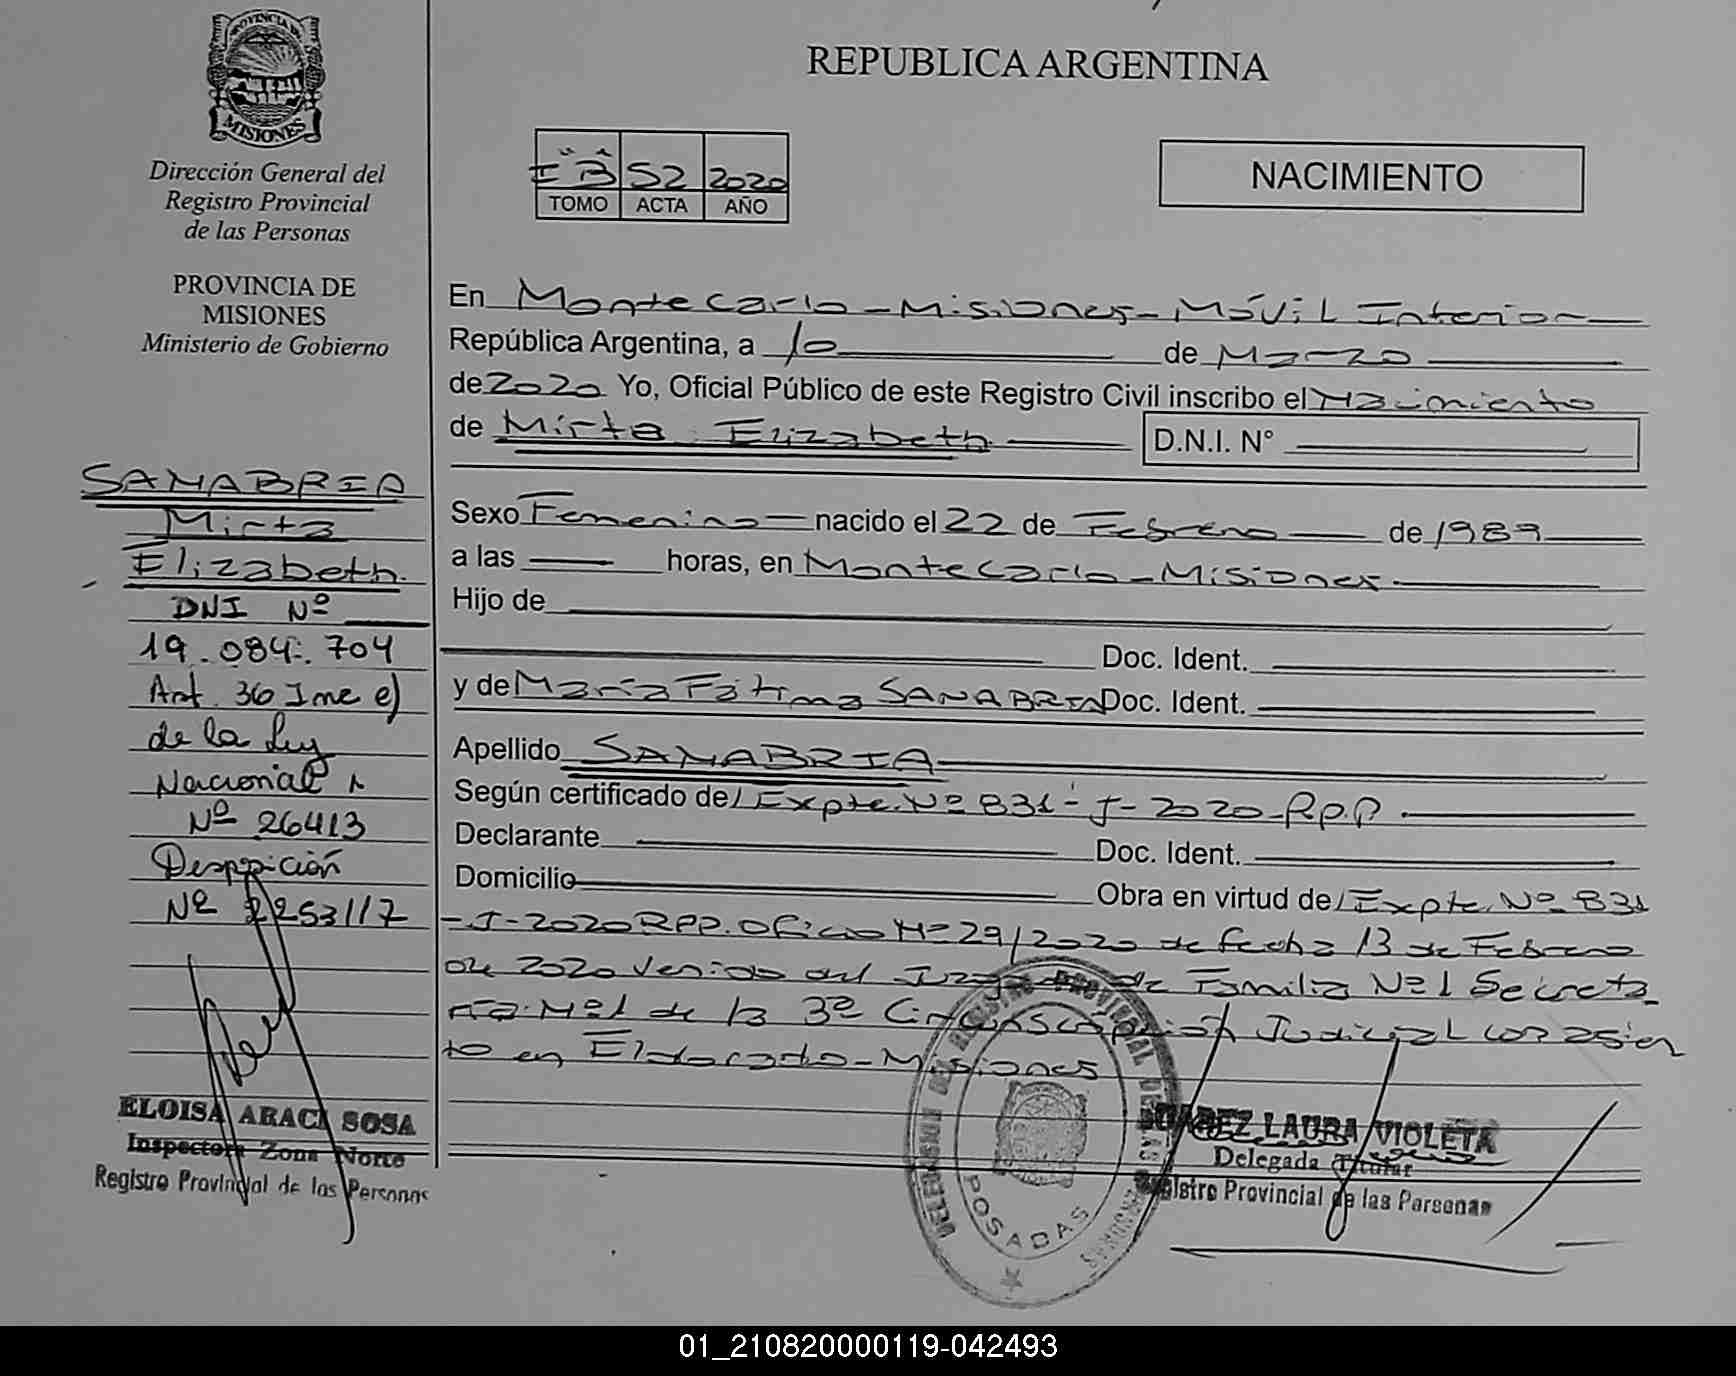 PROVINCIA DE
MISIONES
Dirección General del
Registro Provincial
de las Personas
PROVINCIA DE
MISIONES
Ministerio de Gobierno
SANABRIA
Mirta
Elizabeth.
DNI Nº
19.084.704
Art. 36 Inc e)
de la Ley
Nacional
Nº 26413
Disposición
Nº 2253/17
ELOISA ARACI SOSA
Inspectora Zona Norte
Registro Provincial de las Personas
REPUBLICA ARGENTINA
I "B" 52 2020
TOMO ACTA AÑO
NACIMIENTO
En Montecarlo - Misiones - Móvil Interior
República Argentina, a 10 de Marzo
de 2020 Yo, Oficial Público de este Registro Civil inscribo el Nacimiento
de Mirta Elizabeth D.N.I. N°
Sexo Femenino nacido el 22 de Febrero de 1989
a las horas, en Montecarlo - Misiones
Hijo de
Doc. Ident.
y de María Fátima SANABRIA Doc. Ident.
Apellido SANABRIA
Según certificado de Expte. Nº 831 - J - 2020 - R.P.P.
Declarante Doc. Ident.
Domicilio Obra en virtud de Expte. Nº 831
- J - 2020 RPP. Oficio Nº 29/2020 de fecha 13 de Febrero
de 2020 venido del Juzgado de Familia Nº 1 Secreta
ría Nº 1 de la 3ª Circunscripción Judicial con asien
to en Eldorado - Misiones
DELEGACION DEL REGISTRO PROVINCIAL DE LAS PERSONAS
POSADAS
JUAREZ LAURA VIOLETA
Delegada Titular
Registro Provincial de las Personas
01_210820000119-042493